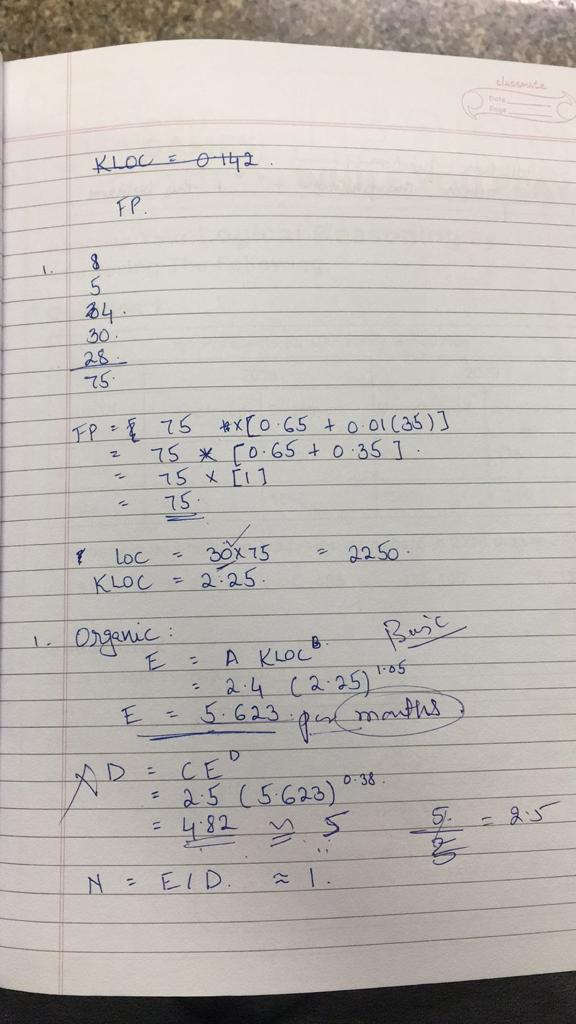 classmate
Date
Page
KLOC = 0.142.
FP.
1. 8
5
34.
30.
28.
75.
FP = 75 *x[0.65 + 0.01(35)]
= 75 * [0.65 + 0.35].
= 75 x [1]
= 75.
LOC = 30x75 = 2250.
KLOC = 2.25.
1. Organic: Basic
E = A KLOC^B.
= 2.4 (2.25)^1.05
E = 5.623 per months
D = CE^D
= 2.5 (5.623)^0.38.
= 4.82 ≈ 5
5/2 = 2.5
N = E/D. ≈ 1.